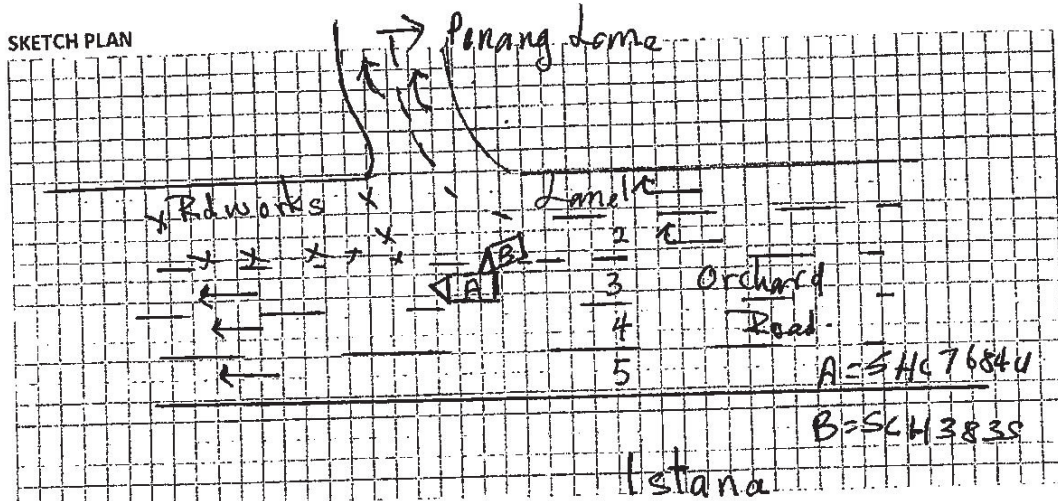 SKETCH PLAN
Penang Lane
Rdworks
Lane 1
2
B
A
3
Orchard
4
Road.
5
A = SHC7684U
B = SCH3835
Istana